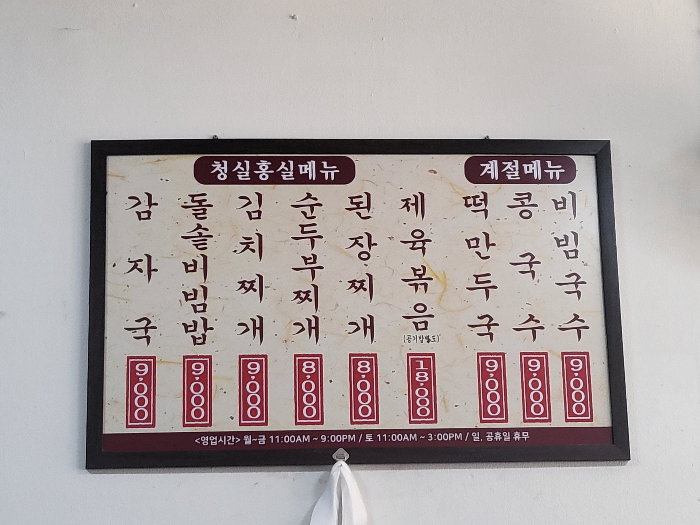 청실홍실메뉴
감자국
9,000
돌솥비빔밥
9,000
김치찌개
9,000
순두부찌개
8,000
된장찌개
8,000
제육볶음
(공기밥별도)
18,000
계절메뉴
떡만두국
9,000
콩국수
9,000
비빔국수
9,000
<영업시간> 월~금 11:00AM ~ 9:00PM / 토 11:00AM ~ 3:00PM / 일, 공휴일 휴무